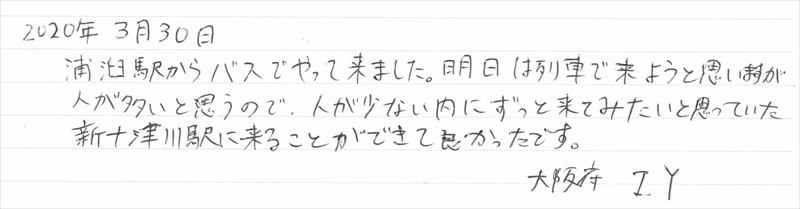 2020年 3月30日
浦臼駅からバスでやって来ました。明日は列車で来ようと思いますが
人が多いと思うので、人が少ない内にずっと来てみたいと思っていた
新十津川駅に来ることができて良かったです。
大阪府 I.Y